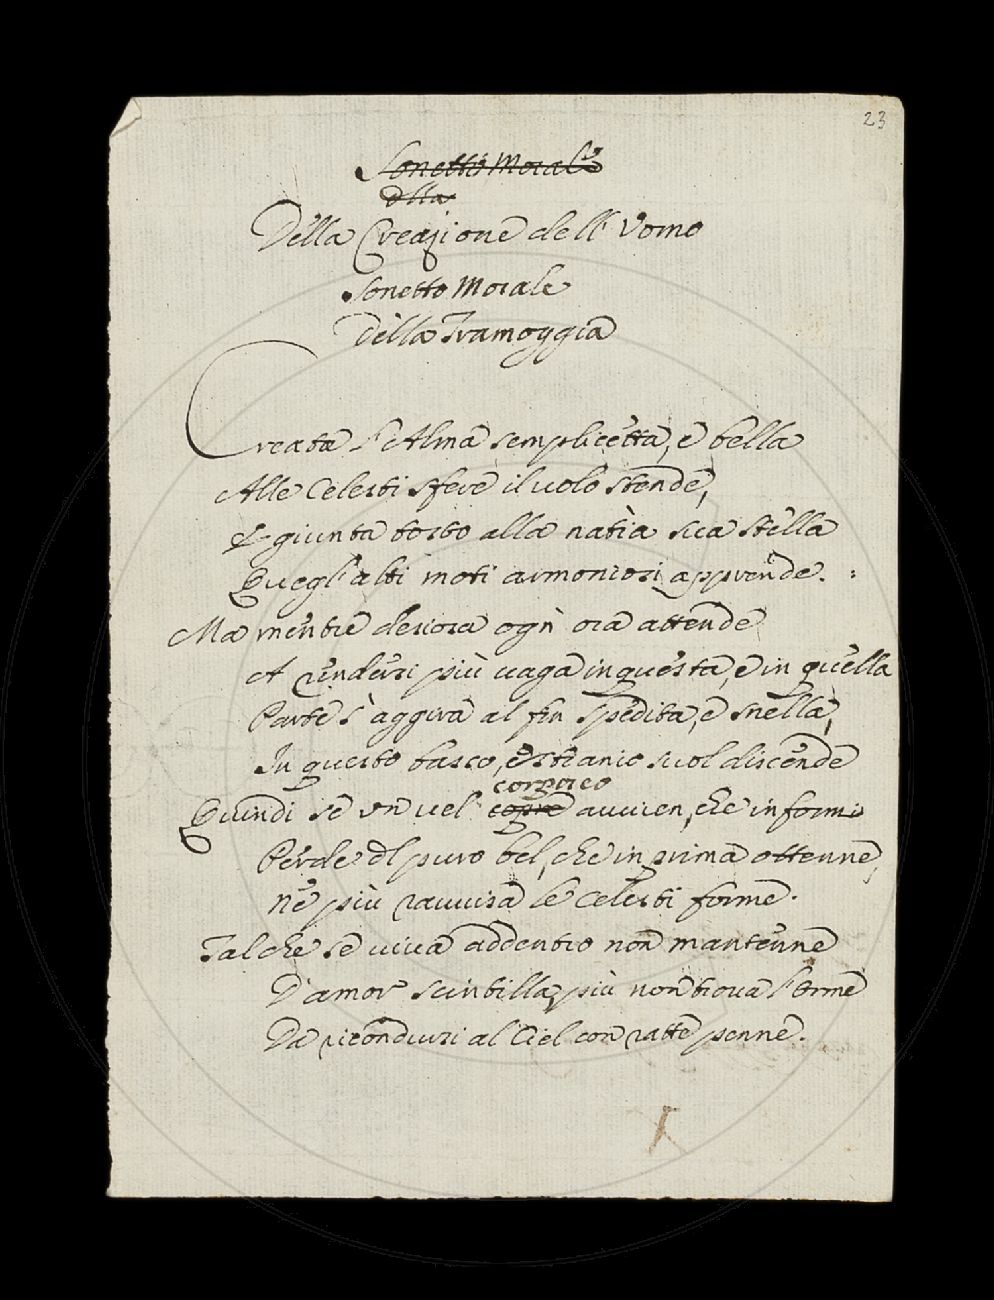 23
Sonetto Morale
della
Della Creazione dell' Vomo
Sonetto Morale
della Tramoggia
Creata l'Alma semplicetta, e bella
Alle Celesti sfere il uolo stende,
E giunta tosto alla natìa sua stella
Quegl'alti moti armoniosi apprende.
Ma mentre desiosa ogn'ora attende
A rendersi più uaga in questa, e in quella
Parte s'aggira al fin spedita, e snella,
In questo basco, e stranio suol discende
Quindi se vn uel corporeo
copre auuien, che informi
Perde il puro bel, che in prima ottenne,
nè più rauuisa le Celesti forme.
Talche se uiua addentro non mantenne
D'amor scintilla, più non troua l'orme
Da ricondursi al Ciel con ratte penne.